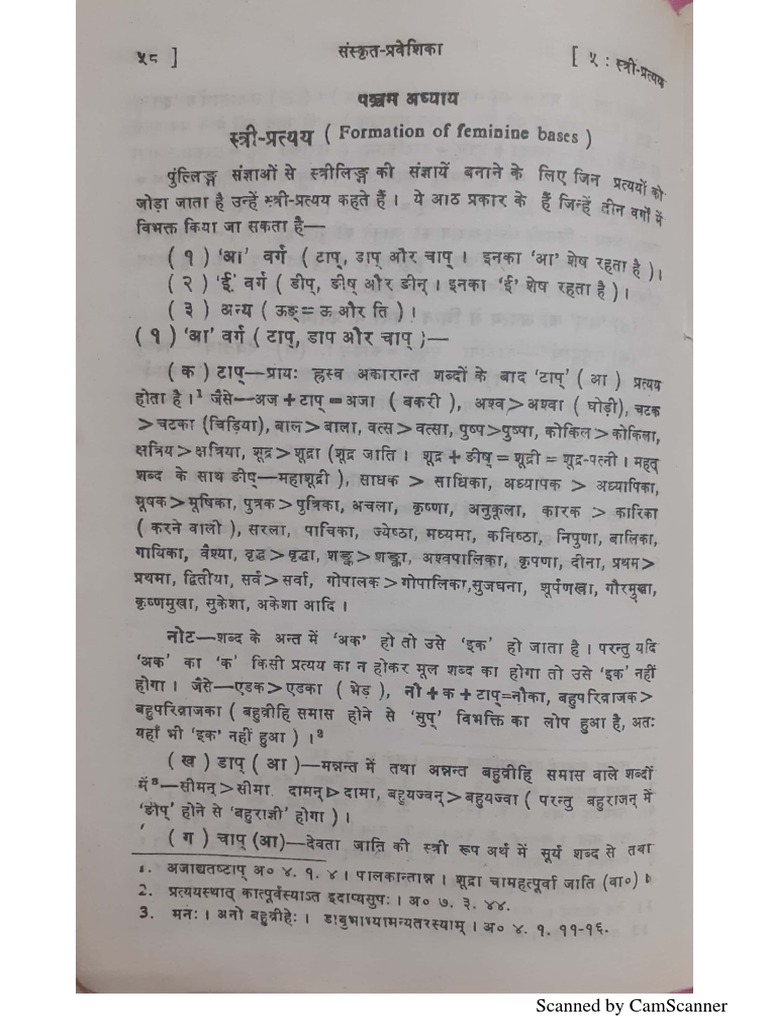 ५८ ] संस्कृत-प्रवेशिका [ ५ : स्त्री-प्रत्यय
पञ्चम अध्याय
स्त्री-प्रत्यय ( Formation of feminine bases )
पुंल्लिङ्ग संज्ञाओं से स्त्रीलिङ्ग की संज्ञायें बनाने के लिए जिन प्रत्ययों को
जोड़ा जाता है उन्हें स्त्री-प्रत्यय कहते हैं । ये आठ प्रकार के हैं जिन्हें तीन वर्गों में
विभक्त किया जा सकता है—
( १ ) ‘आ’ वर्ग ( टाप्, डाप् और चाप् । इनका ‘आ’ शेष रहता है ) ।
( २ ) ‘ई’ वर्ग ( ङीप्, ङीष् और ङीन् । इनका ‘ई’ शेष रहता है ) ।
( ३ ) अन्य ( ऊङ् = ऊ और ति ) ।
( १ ) ‘आ’ वर्ग ( टाप्, डाप और चाप् )—
( क ) टाप्—प्रायः ह्रस्व अकारान्त शब्दों के बाद ‘टाप्’ ( आ ) प्रत्यय
होता है ।¹ जैसे—अज + टाप् = अजा ( बकरी ), अश्व > अश्वा ( घोड़ी ), चटक
> चटका (चिड़िया), बाल > बाला, वत्स > वत्सा, पुष्प > पुष्पा, कोकिल > कोकिला,
क्षत्रिय > क्षत्रिया, शूद्र > शूद्रा (शूद्र जाति । शूद्र + ङीष् = शूद्री = शूद्र-पत्नी । महत्
शब्द के साथ ङीष्—महाशूद्री ), साधक > साधिका, अध्यापक > अध्यापिका,
मूषक > मूषिका, पुत्रक > पुत्रिका, अचला, कृष्णा, अनुकूला, कारक > कारिका
( करने वाली ), सरला, पाचिका, ज्येष्ठा, मध्यमा, कनिष्ठा, निपुणा, बालिका,
गायिका, वैश्या, वृद्ध > वृद्धा, शङ्क > शङ्का, अश्वपालिका, कृपणा, दीना, प्रथम >
प्रथमा, द्वितीया, सर्व > सर्वा, गोपालक > गोपालिका, सुजघना, शूर्पणखा, गौरमुखा,
कृष्णमुखा, सुकेशा, अकेशा आदि ।
नोट—शब्द के अन्त में ‘अक’ हो तो उसे ‘इक’ हो जाता है । परन्तु यदि
‘अक’ का ‘क’ किसी प्रत्यय का न होकर मूल शब्द का होगा तो उसे ‘इक’ नहीं
होगा । जैसे—एडक > एडका ( भेड़ ), नौ + क + टाप् = नौका, बहुपरिव्राजक >
बहुपरिव्राजका ( बहुव्रीहि समास होने से ‘सुप्’ विभक्ति का लोप हुआ है, अतः
यहाँ भी ‘इक’ नहीं हुआ ) ।²
( ख ) डाप् ( आ )—मन्नन्त में तथा अन्नन्त बहुव्रीहि समास वाले शब्दों
में³—सीमन् > सीमा. दामन् > दामा, बहुयज्वन् > बहुयज्वा ( परन्तु बहुराजन् में
‘ङीप्’ होने से ‘बहुराज्ञी’ होगा ) ।
( ग ) चाप् (आ)—देवता जाति की स्त्री रूप अर्थ में सूर्य शब्द से तथा
1. अजाद्यतष्टाप् अ० ४. १. ४ । पालकान्तान्न । शूद्रा चामहत्पूर्वा जाति (वा०) ।
2. प्रत्ययस्थात् कात्पूर्वस्याऽत इदाप्यसुपः । अ० ७. ३. ४४.
3. मनः । अनो बहुव्रीहेः । डाबुभाभ्यामन्यतरस्याम् । अ० ४. १. ११-१६.
Scanned by CamScanner